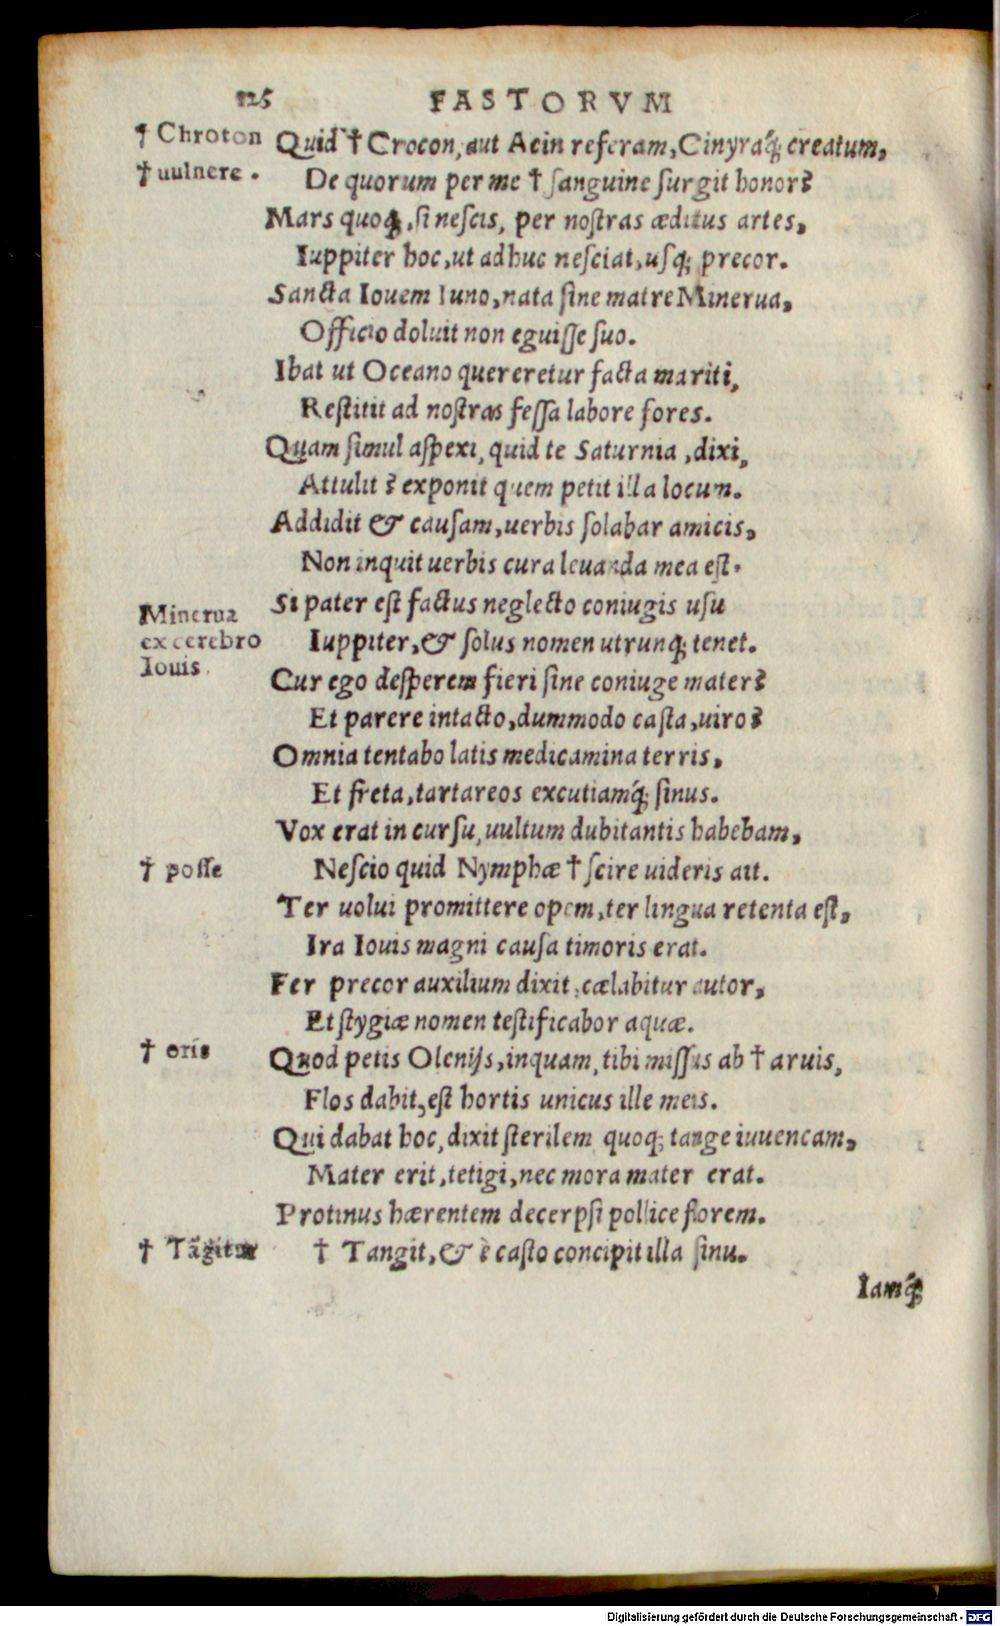 125 FASTORVM
† Chroton Quid † Crocon, aut Acin referam, Cinyraq́; creatum,
† uulnere. De quorum per me † ſanguine ſurgit honor?
Mars quoq;, ſi neſcis, per noſtras æditus artes,
Iuppiter hoc, ut adhuc neſciat, uſq; precor.
Sancta Iouem Iuno, nata ſine matre Minerua,
Officio doluit non eguiſſe ſuo.
Ibat ut Oceano quereretur facta mariti,
Reſtitit ad noſtras feſſa labore fores.
Quam ſimul aſpexi, quid te Saturnia, dixi,
Attulit? exponit quem petit illa locum.
Addidit & cauſam, uerbis ſolabar amicis,
Non inquit uerbis cura leuanda mea eſt.
Si pater eſt factus neglecto coniugis uſu
Minerua
ex cerebro
Iouis.
Iuppiter, & ſolus nomen utrunq; tenet.
Cur ego deſperem fieri ſine coniuge mater?
Et parere intacto, dummodo caſta, uiro?
Omnia tentabo latis medicamina terris,
Et freta, tartareos excutiamq́; ſinus.
Vox erat in curſu, uultum dubitantis habebam,
† poſſe Neſcio quid Nymphæ † ſcire uideris ait.
Ter uolui promittere opem, ter lingua retenta eſt,
Ira Iouis magni cauſa timoris erat.
Fer precor auxilium dixit, cælabitur autor,
Et ſtygiæ nomen teſtificabor aquæ.
† oris Quod petis Olenijs, inquam, tibi miſſus ab † aruis,
Flos dabit, eſt hortis unicus ille meis.
Qui dabat hoc, dixit ſterilem quoq; tange iuuencam,
Mater erit, tetigi, nec mora mater erat.
Protinus hærentem decerpſi pollice florem.
† Tãgitur † Tangit, & è caſto concipit illa ſinu.
Iamq́;
Digitalisierung gefördert durch die Deutsche Forschungsgemeinschaft - DFG